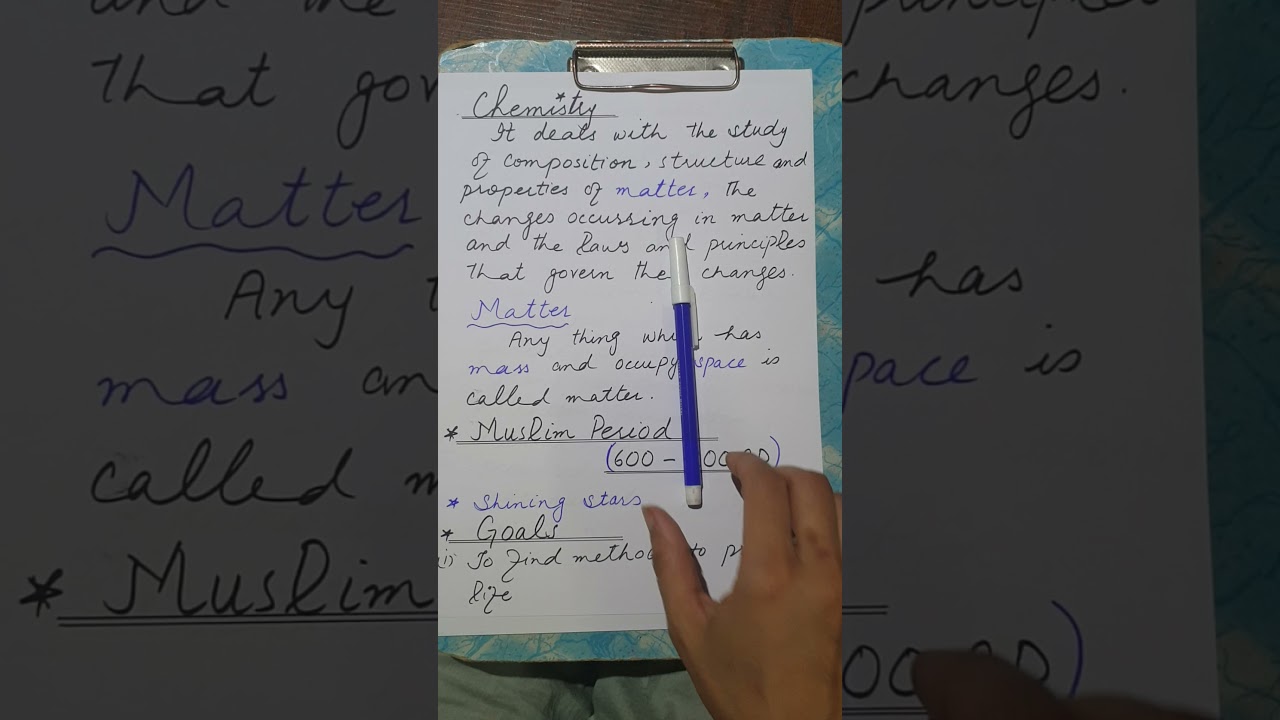 Chemistry
It deals with the study
of composition, structure and
properties of matter, The
changes occurring in matter
and the laws and principles
That govern the changes.
Matter
Any thing which has
mass and occupy space is
called matter.
* Muslim Period
(600 -
* Shining stars
* Goals
To Find method to
life